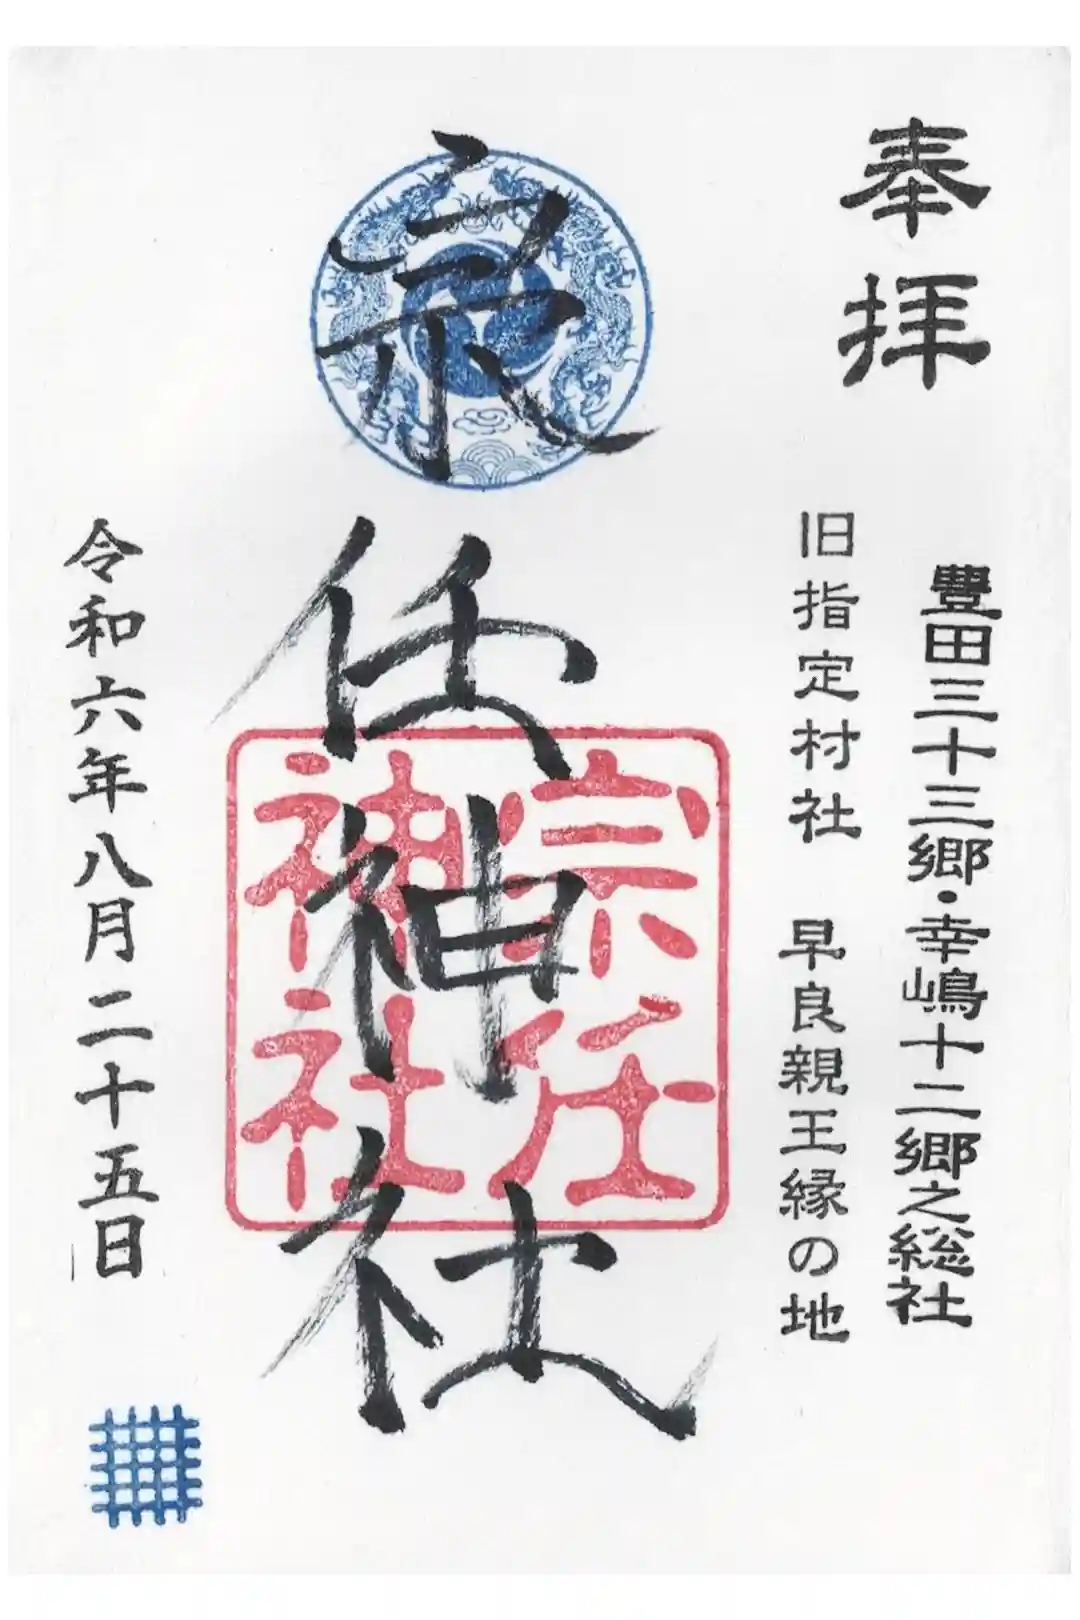 奉拝
豊田三十三郷・幸嶋十二郷之総社
旧指定村社 早良親王縁の地
宗任神社
宗任
神社
令和六年八月二十五日